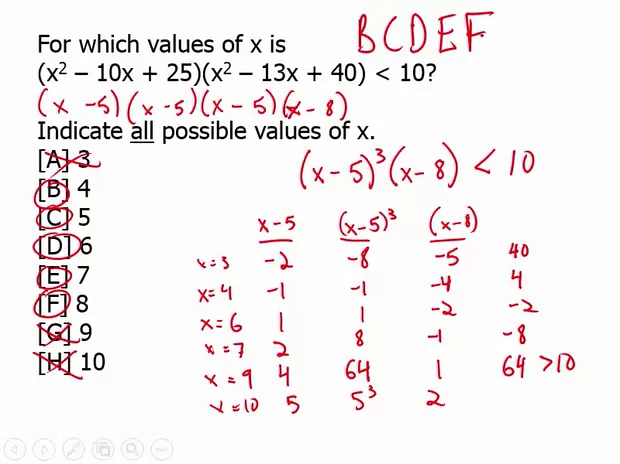 For which values of x is
B C D E F
(x² – 10x + 25)(x² – 13x + 40) < 10?
(x -5)(x -5)(x - 5)(x - 8)
Indicate all possible values of x.
[A] 3
[B] 4
[C] 5
[D] 6
[E] 7
[F] 8
[G] 9
[H] 10
(x-5)³(x-8) < 10
x-5 (x-5)³ (x-8)
x=3 -2 -8 -5 40
x=4 -1 -1 -4 4
x=6 1 1 -2 -2
x=7 2 8 -1 -8
x=9 4 64 1 64 >10
x=10 5 5³ 2